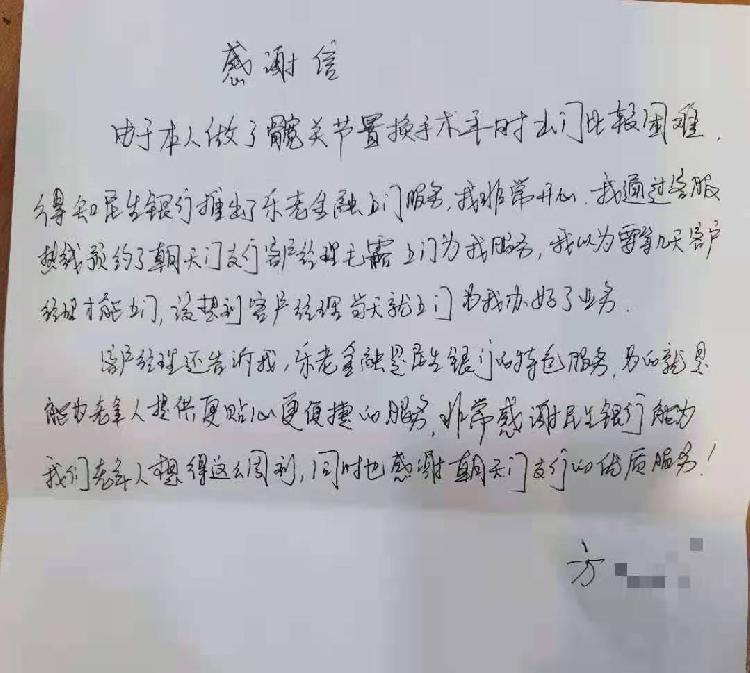 感谢信
由于本人做了髋关节置换手术平时出门比较困难，
得知民生银行推出了乐老金融上门服务，我非常开心，我通过客服
热线预约了朝天门支行客户经理毛露上门为我服务，我以为要等几天客户
经理才能上门，没想到客户经理当天就上门为我办好了业务．
客户经理还告诉我，乐老金融是民生银行的特色服务，为的就是
能为老年人提供更贴心更便捷的服务，非常感谢民生银行能为
我们老年人想得这么周到，同时也感谢朝天门支行的优质服务！
方